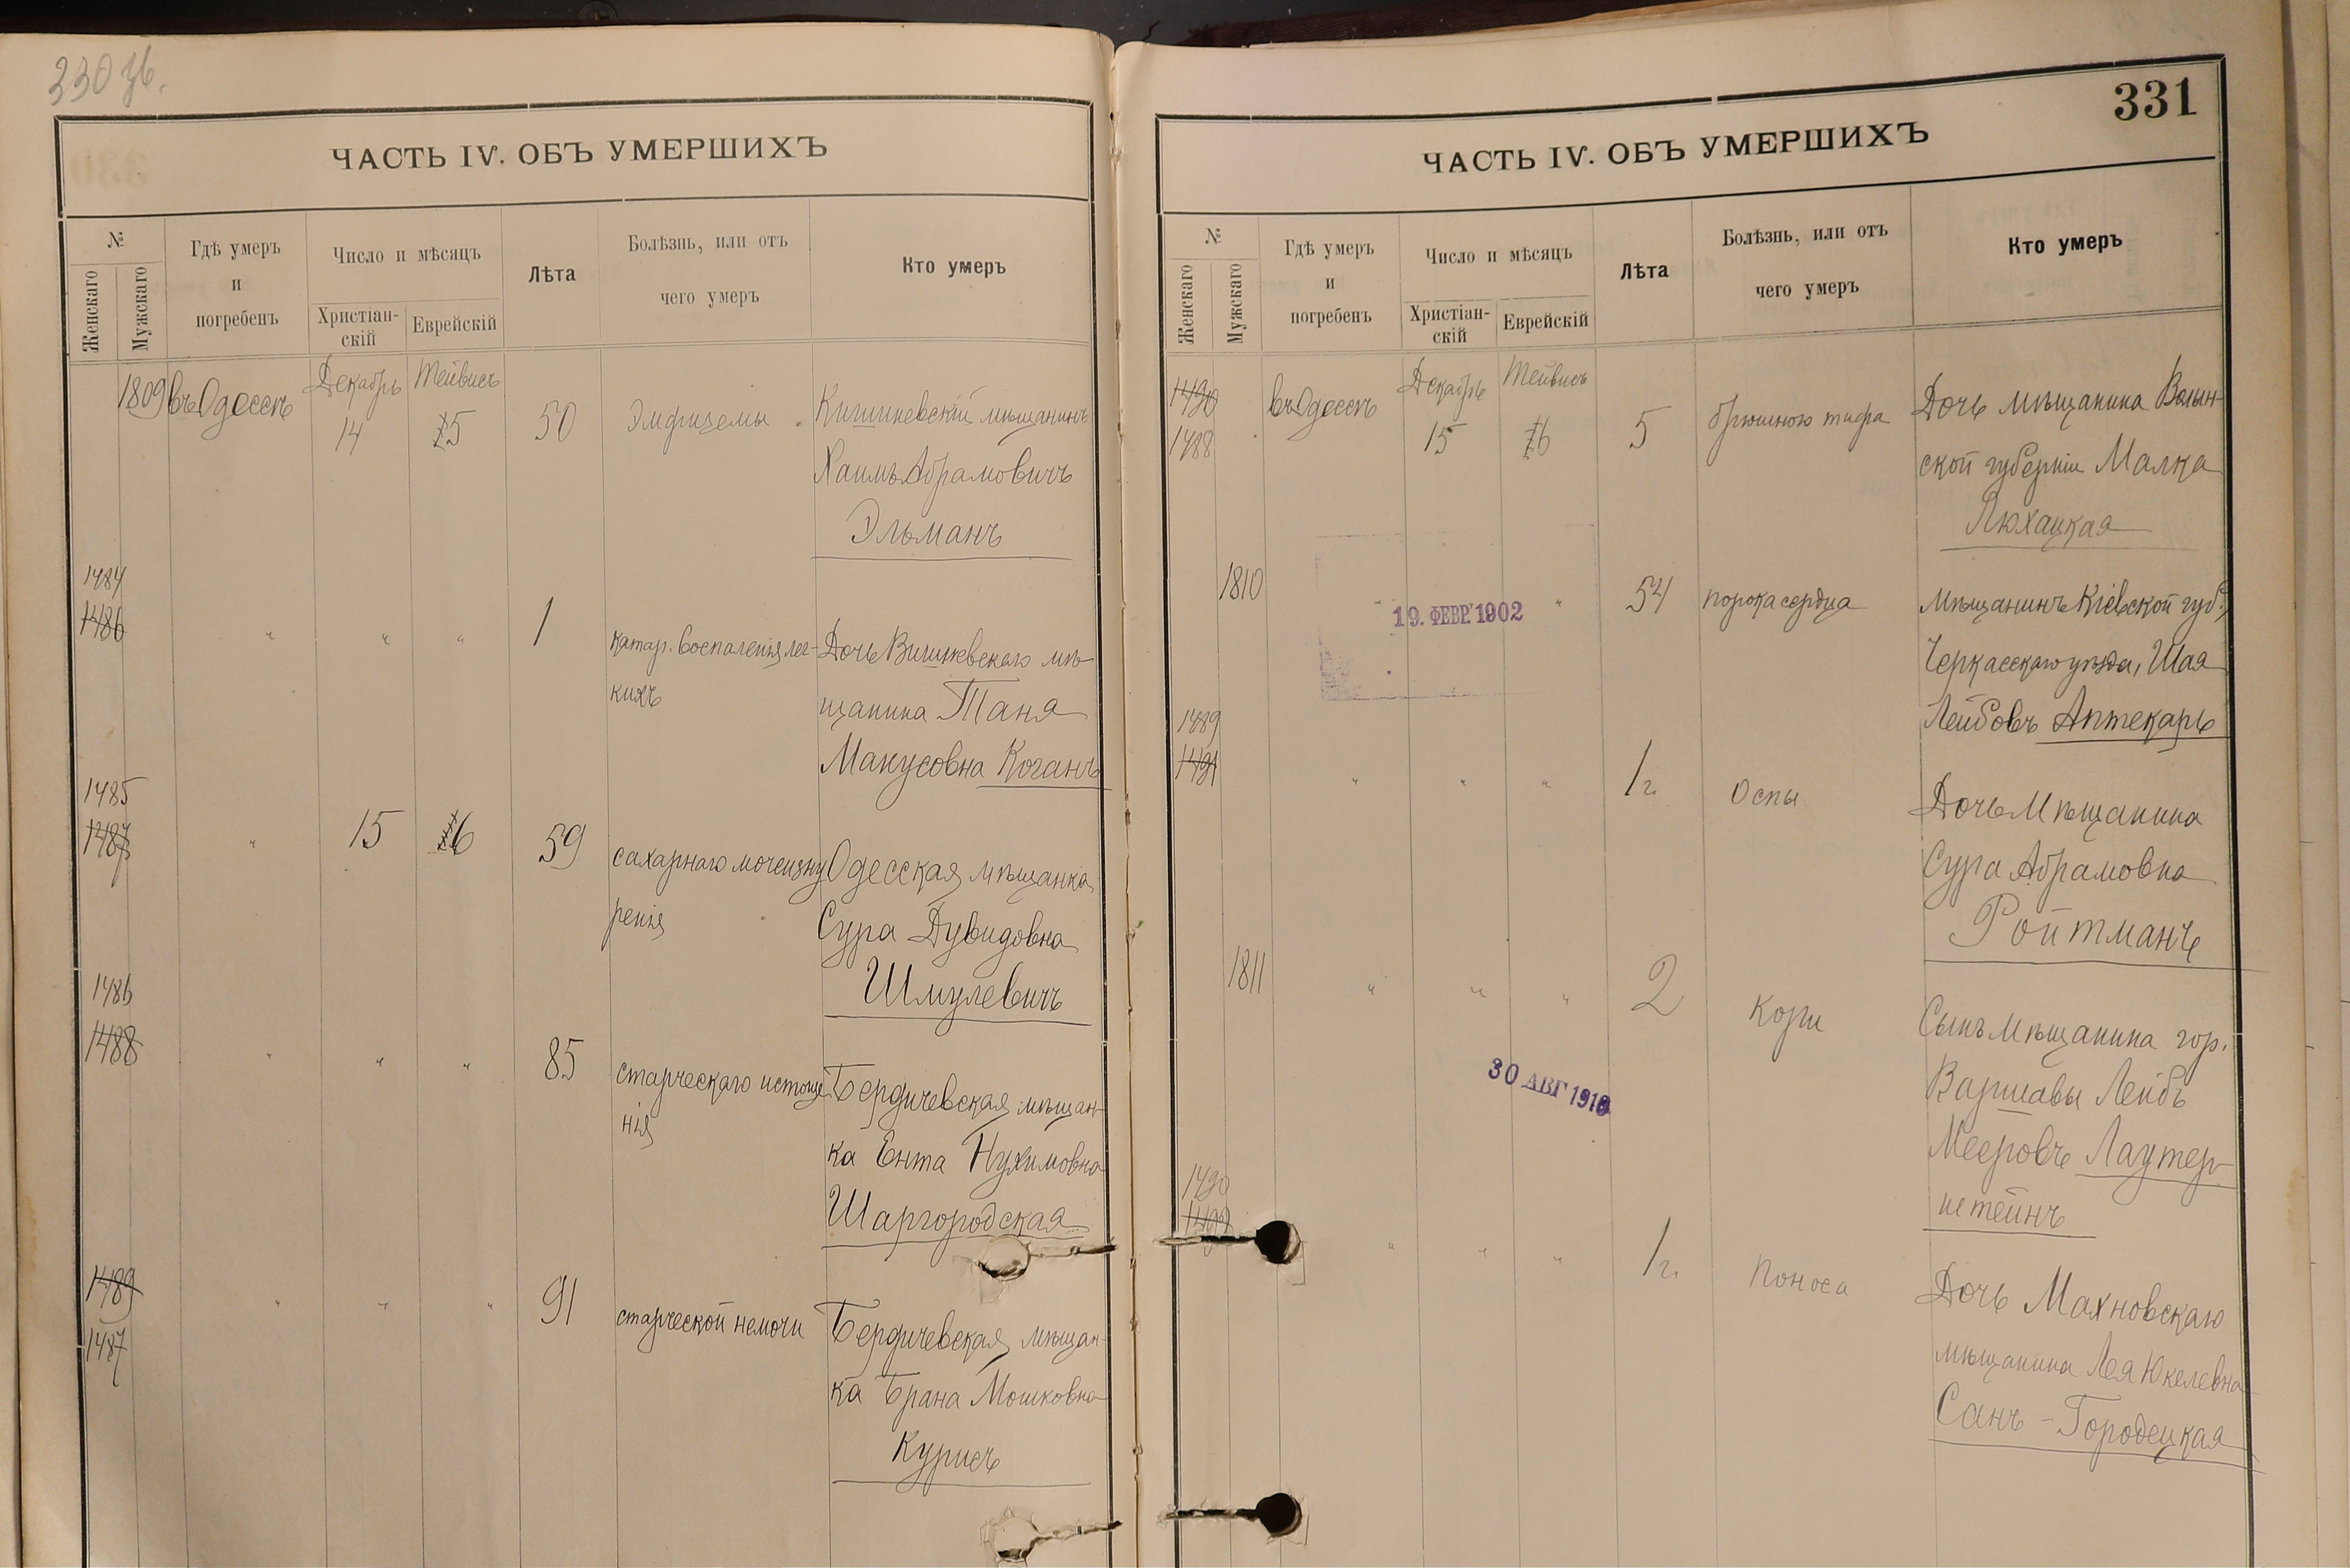 330 зв.
ЧАСТЬ IV. ОБЪ УМЕРШИХЪ
№
Женскаго
Мужскаго
Гдѣ умеръ
и
погребенъ
Число и мѣсяцъ
Христіан-
скій
Еврейскій
Лѣта
Болѣзнь, или отъ
чего умеръ
Кто умеръ
1809 въ Одессѣ Декабрь Тейвисъ
14 5 50 Эмфиземы Кишиневскій мѣщанинъ
Хаимъ Абрамовичъ
Эльманъ
1484
1486 " " " 1 катар. воспаленія лег- Дочь мѣ-
кихъ щанина Таня
Манусовна Коганъ
1485
1487 " 15 6 59 сахарнаго мочеизну Одесская мѣщанка
ренія Сура Дувидовна
Шмулевичъ
1486
1488 " " " 85 старческаго истоще Бердичевская мѣщан-
нія ка Ента Нухимовна
Шаргородская
1489 " " " 91 старческой немочи Бердичевская мѣщан-
1487 ка Брана Мошковна
Курисъ
331
ЧАСТЬ IV. ОБЪ УМЕРШИХЪ
№
Женскаго
Мужскаго
Гдѣ умеръ
и
погребенъ
Число и мѣсяцъ
Христіан-
скій
Еврейскій
Лѣта
Болѣзнь, или отъ
чего умеръ
Кто умеръ
1490 въ Одессѣ Декабрь Тейвисъ Дочь мѣщанина Волын-
1488 15 6 5 брюшного тифа
ской губерніи Малка
Люхацкая
1810 " " 54 порока сердца мѣщанинъ Кіевской губ.,
19. ФЕВР. 1902
Черкасскаго уѣзда, Шая
Лейбовъ Аптекарь
1489
1491 " " " 1 г. Оспы Дочь Мѣщанина
Сура Абрамовна
Ройтманъ
1811 " " " 2 Кори Сынъ мѣщанина гор.
30 АВГ 1910
Варшавы Лейбъ
Мееровъ Лаутер-
штейнъ
1490
1492 " " " 1 г. Поноса Дочь Махновскаго
мѣщанина Лея Юкелевна
Санъ-Городецкая